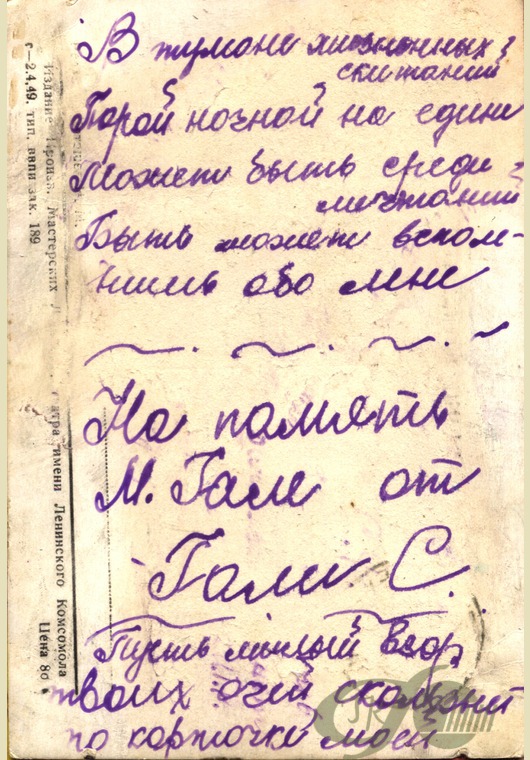 В тумане жизненных
скитаний
Порой ночной на едине
Может быть среди
мечтаний
Быть может вспом-
нишь обо мне
На память
М. Гале от
Гали С.
Пусть милый взор
твоих очей скользнет
по карточке моей
Издание Произв. Мастерских
театра имени Ленинского Комсомола
г—2.4.49. тип. ввпи зак. 189
Цена 80